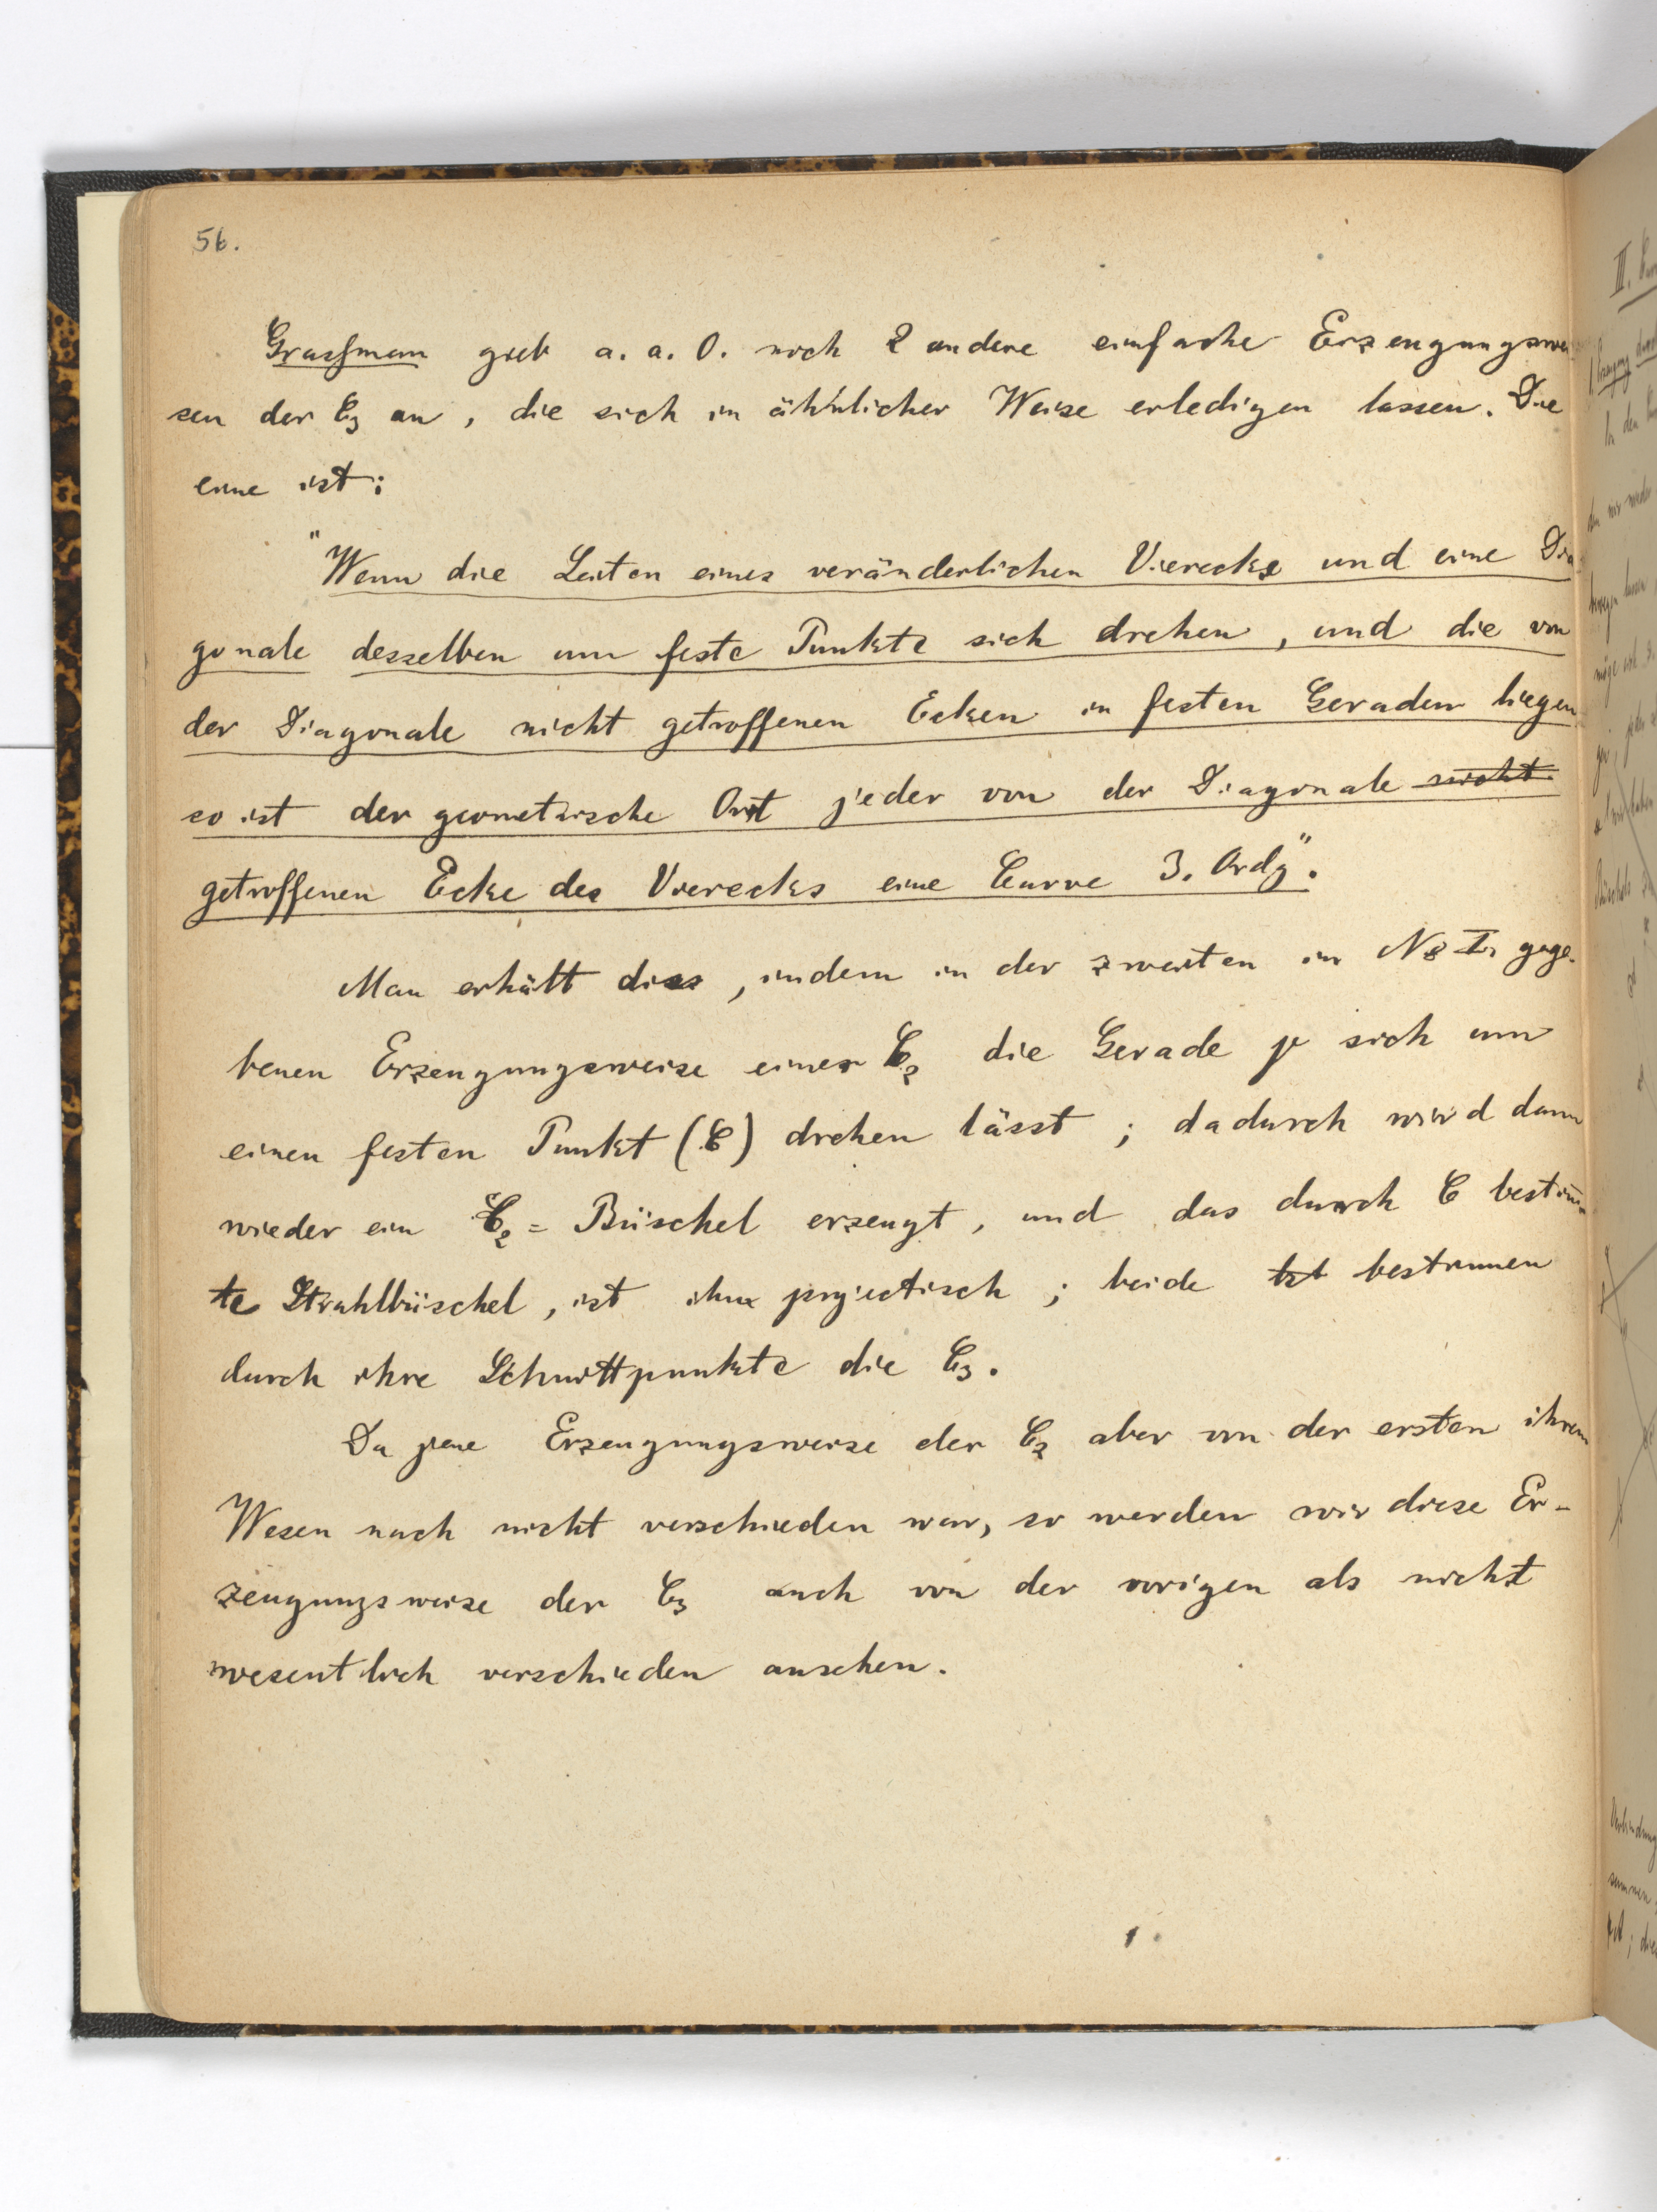 56.
Grassman gieb a. a. O. noch 2 andere einfache Erzeugungswei
sen der C3 an, die sich in ähnlicher Weise erledigen lassen. Die
eine ist:
"Wenn die Seiten eines veränderlichen Vierecks und eine Dia
gonale desselben um feste Punkte sich drehen, und die von
der Diagonale nicht getroffenen Ecken in festen Geraden liegen
so ist der geometrische Ort jeder von der Diagonale nicht
getroffenen Ecke des Vierecks eine Curve 3. Ordg".
Man erhält dies, indem in der zweiten in No I. gege-
benen Erzeugungsweise einer C2 die Gerade p sich um
einen festen Punkt (C) drehen lässt; dadurch wird dann
wieder ein C2 = Büschel erzeugt, und das durch C bestim̄
te Strahlbüschel, ist ihm projectisch; beide bst bestimmen
durch ihre Schnittpunkte die C3.
Da jene Erzeugungsweise der C2 aber von der ersten ihrem
Wesen nach nicht verschieden war, so werden wir diese Er-
zeugungsweise der C3 auch von der vorigen als nicht
wesentlich verschieden ansehen.